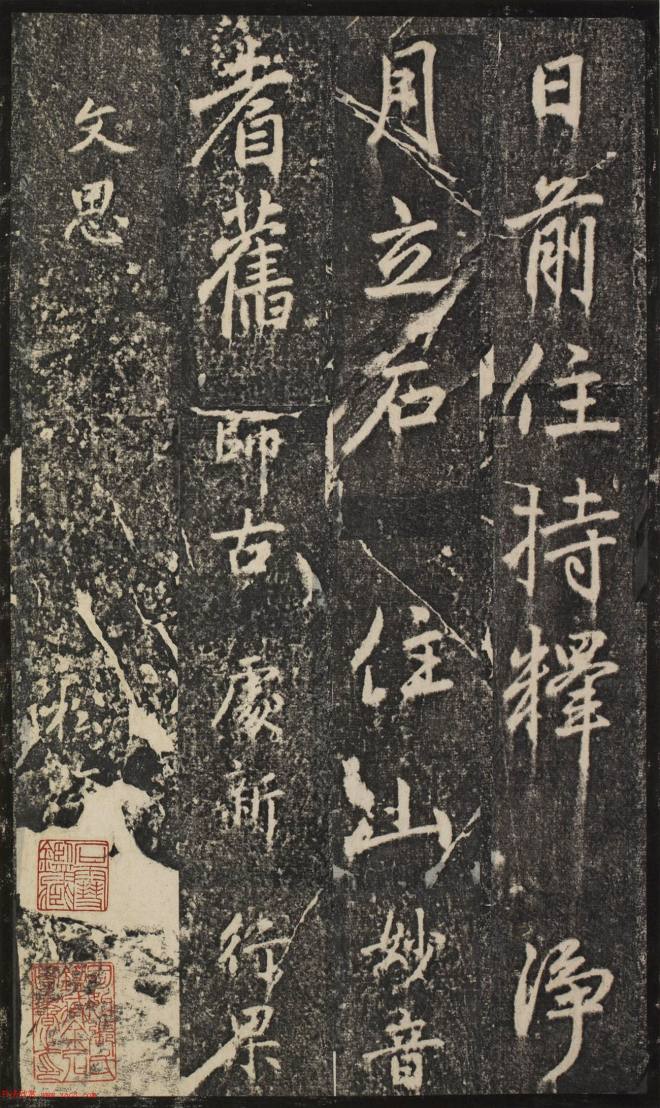 日前住持糧淨
月立石住山妙音
耆舊師古處新行果
文思